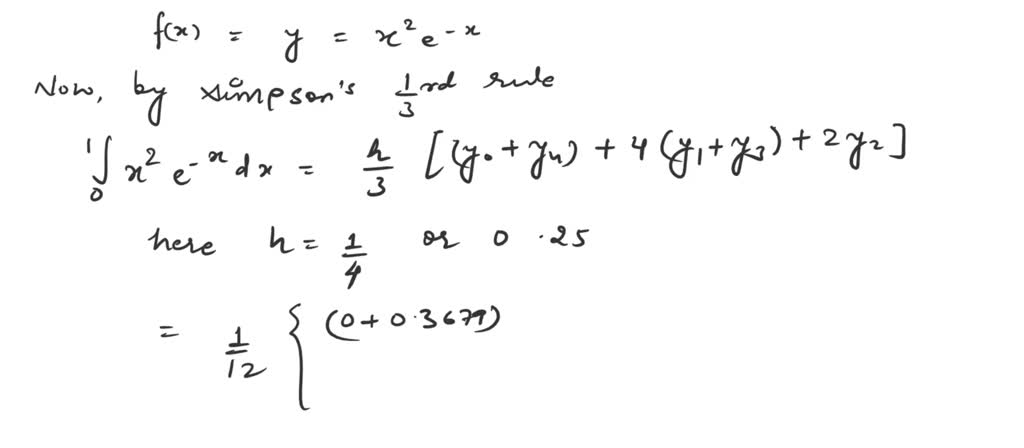 f(x) = y = x² e^-x
Now, by simpson's 1/3 rd rule
∫₀¹ x² e^-x dx = h/3 [(y₀ + y₄) + 4 (y₁ + y₃) + 2y₂]
here h = 1/4 or 0.25
= 1/12 { (0 + 0.3679)